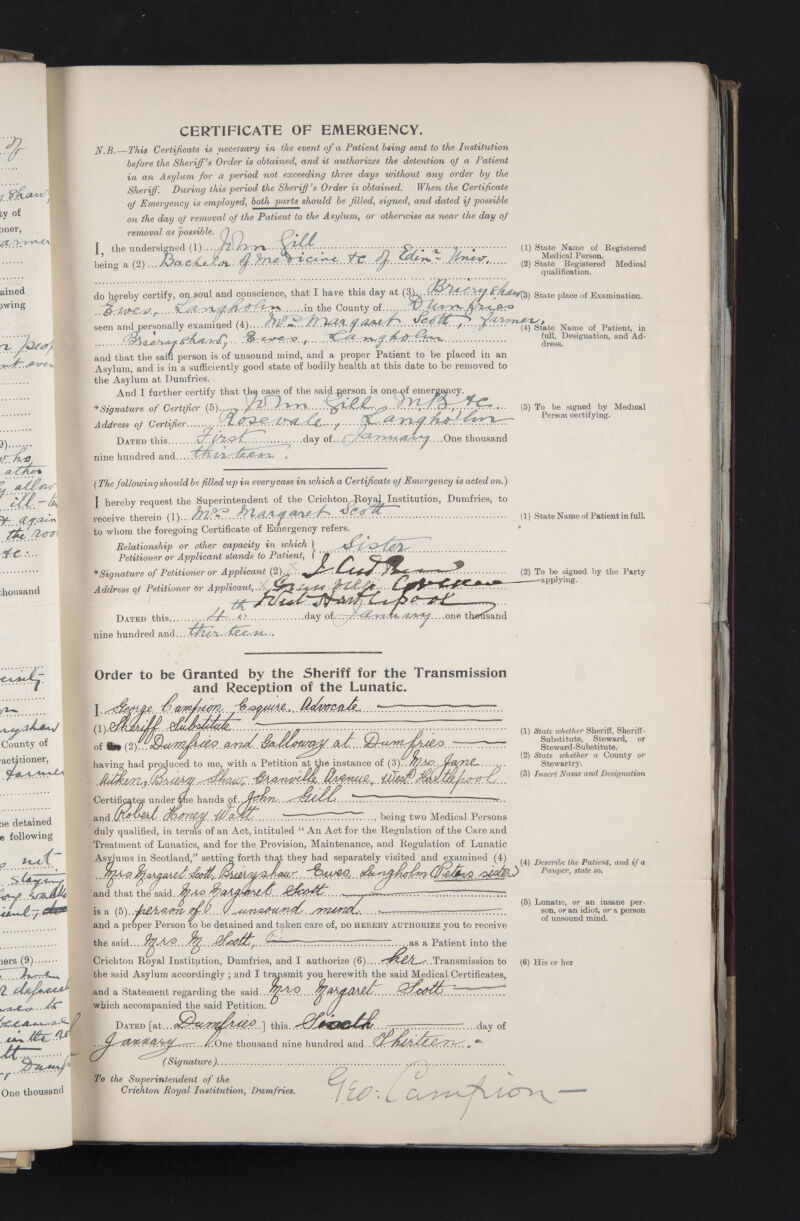 CERTIFICATE OF EMERGENCY.
N.B.—This Certificate is necessary in the event of a Patient being sent to the Institution
before the Sheriff's Order is obtained, and it authorizes the detention of a Patient
in an Asylum for a period not exceeding three days without any order by the
Sheriff. During this period the Sheriff's Order is obtained. When the Certificate
of Emergency is employed, both parts should be filled, signed, and dated if possible
on the day of removal of the Patient to the Asylum, or otherwise as near the day of
removal as possible.
I, the undersigned (1) John Gill
(1) State Name of Registered Medical Person.
being a (2) Bachelor of Medicine &c of Edinr Univ.
(2) State Registered Medical qualification.
do hereby certify, on soul and conscience, that I have this day at (3) Brieryshaw
(3) State place of Examination.
Ewes, Langholm in the County of Dumfries
seen and personally examined (4) Mrs Margaret Scott, farmer,
(4) State Name of Patient, in full, Designation, and Address.
Brieryshaw, Ewes, Langholm
and that the said person is of unsound mind, and a proper Patient to be placed in an
Asylum, and is in a sufficiently good state of bodily health at this date to be removed to
the Asylum at Dumfries.
And I further certify that the case of the said person is one of emergency.
*Signature of Certifier (5) John Gill M.B &c
(5) To be signed by Medical Person certifying.
Address of Certifier Rosevale, Langholm
DATED this First day of January One thousand
nine hundred and thirteen.
(The following should be filled up in every case in which a Certificate of Emergency is acted on.)
I hereby request the Superintendent of the Crichton Royal Institution, Dumfries, to
receive therein (1) Mrs Margaret Scott
(1) State Name of Patient in full.
to whom the foregoing Certificate of Emergency refers.
Relationship or other capacity in which
Petitioner or Applicant stands to Patient, Sister
*Signature of Petitioner or Applicant (2)
(2) To be signed by the Party applying.
Address of Petitioner or Applicant,
West Hartlepool
DATED this 4th day of January one thousand
nine hundred and thirteen.
Order to be Granted by the Sheriff for the Transmission
and Reception of the Lunatic.
I George Campion, Esquire, Advocate
(1) Sheriff Substitute
(1) State whether Sheriff, Sheriff-Substitute, Steward, or Steward-Substitute.
of (2) Dumfries and Galloway at Dumfries
(2) State whether a County or Stewartry.
having had produced to me, with a Petition at the instance of (3) Mrs Jane
(3) Insert Name and Designation
Aitken, Briery Shaw, Granville Avenue, West Hartlepool
Certificates under the hands of John Gill
and Robert Honey Watt, being two Medical Persons
duly qualified, in terms of an Act, intituled "An Act for the Regulation of the Care and
Treatment of Lunatics, and for the Provision, Maintenance, and Regulation of Lunatic
Asylums in Scotland," setting forth that they had separately visited and examined (4)
(4) Describe the Patient, and if a Pauper, state so.
Mrs Margaret Scott, Brieryshaw, Ewes, Langholm (Peters sister)
and that the said Mrs Margaret Scott
is a (5) person of unsound mind
(5) Lunatic, or an insane person, or an idiot, or a person of unsound mind.
and a proper Person to be detained and taken care of, DO HEREBY AUTHORIZE you to receive
the said Mrs M Scott, as a Patient into the
Crichton Royal Institution, Dumfries, and I authorize (6) her Transmission to
(6) His or her
the said Asylum accordingly; and I transmit you herewith the said Medical Certificates,
and a Statement regarding the said Mrs Margaret Scott
which accompanied the said Petition.
DATED [at Dumfries] this Sixth day of
January One thousand nine hundred and Thirteen.
(Signature)
To the Superintendent of the
Crichton Royal Institution, Dumfries.
Geo: Campion